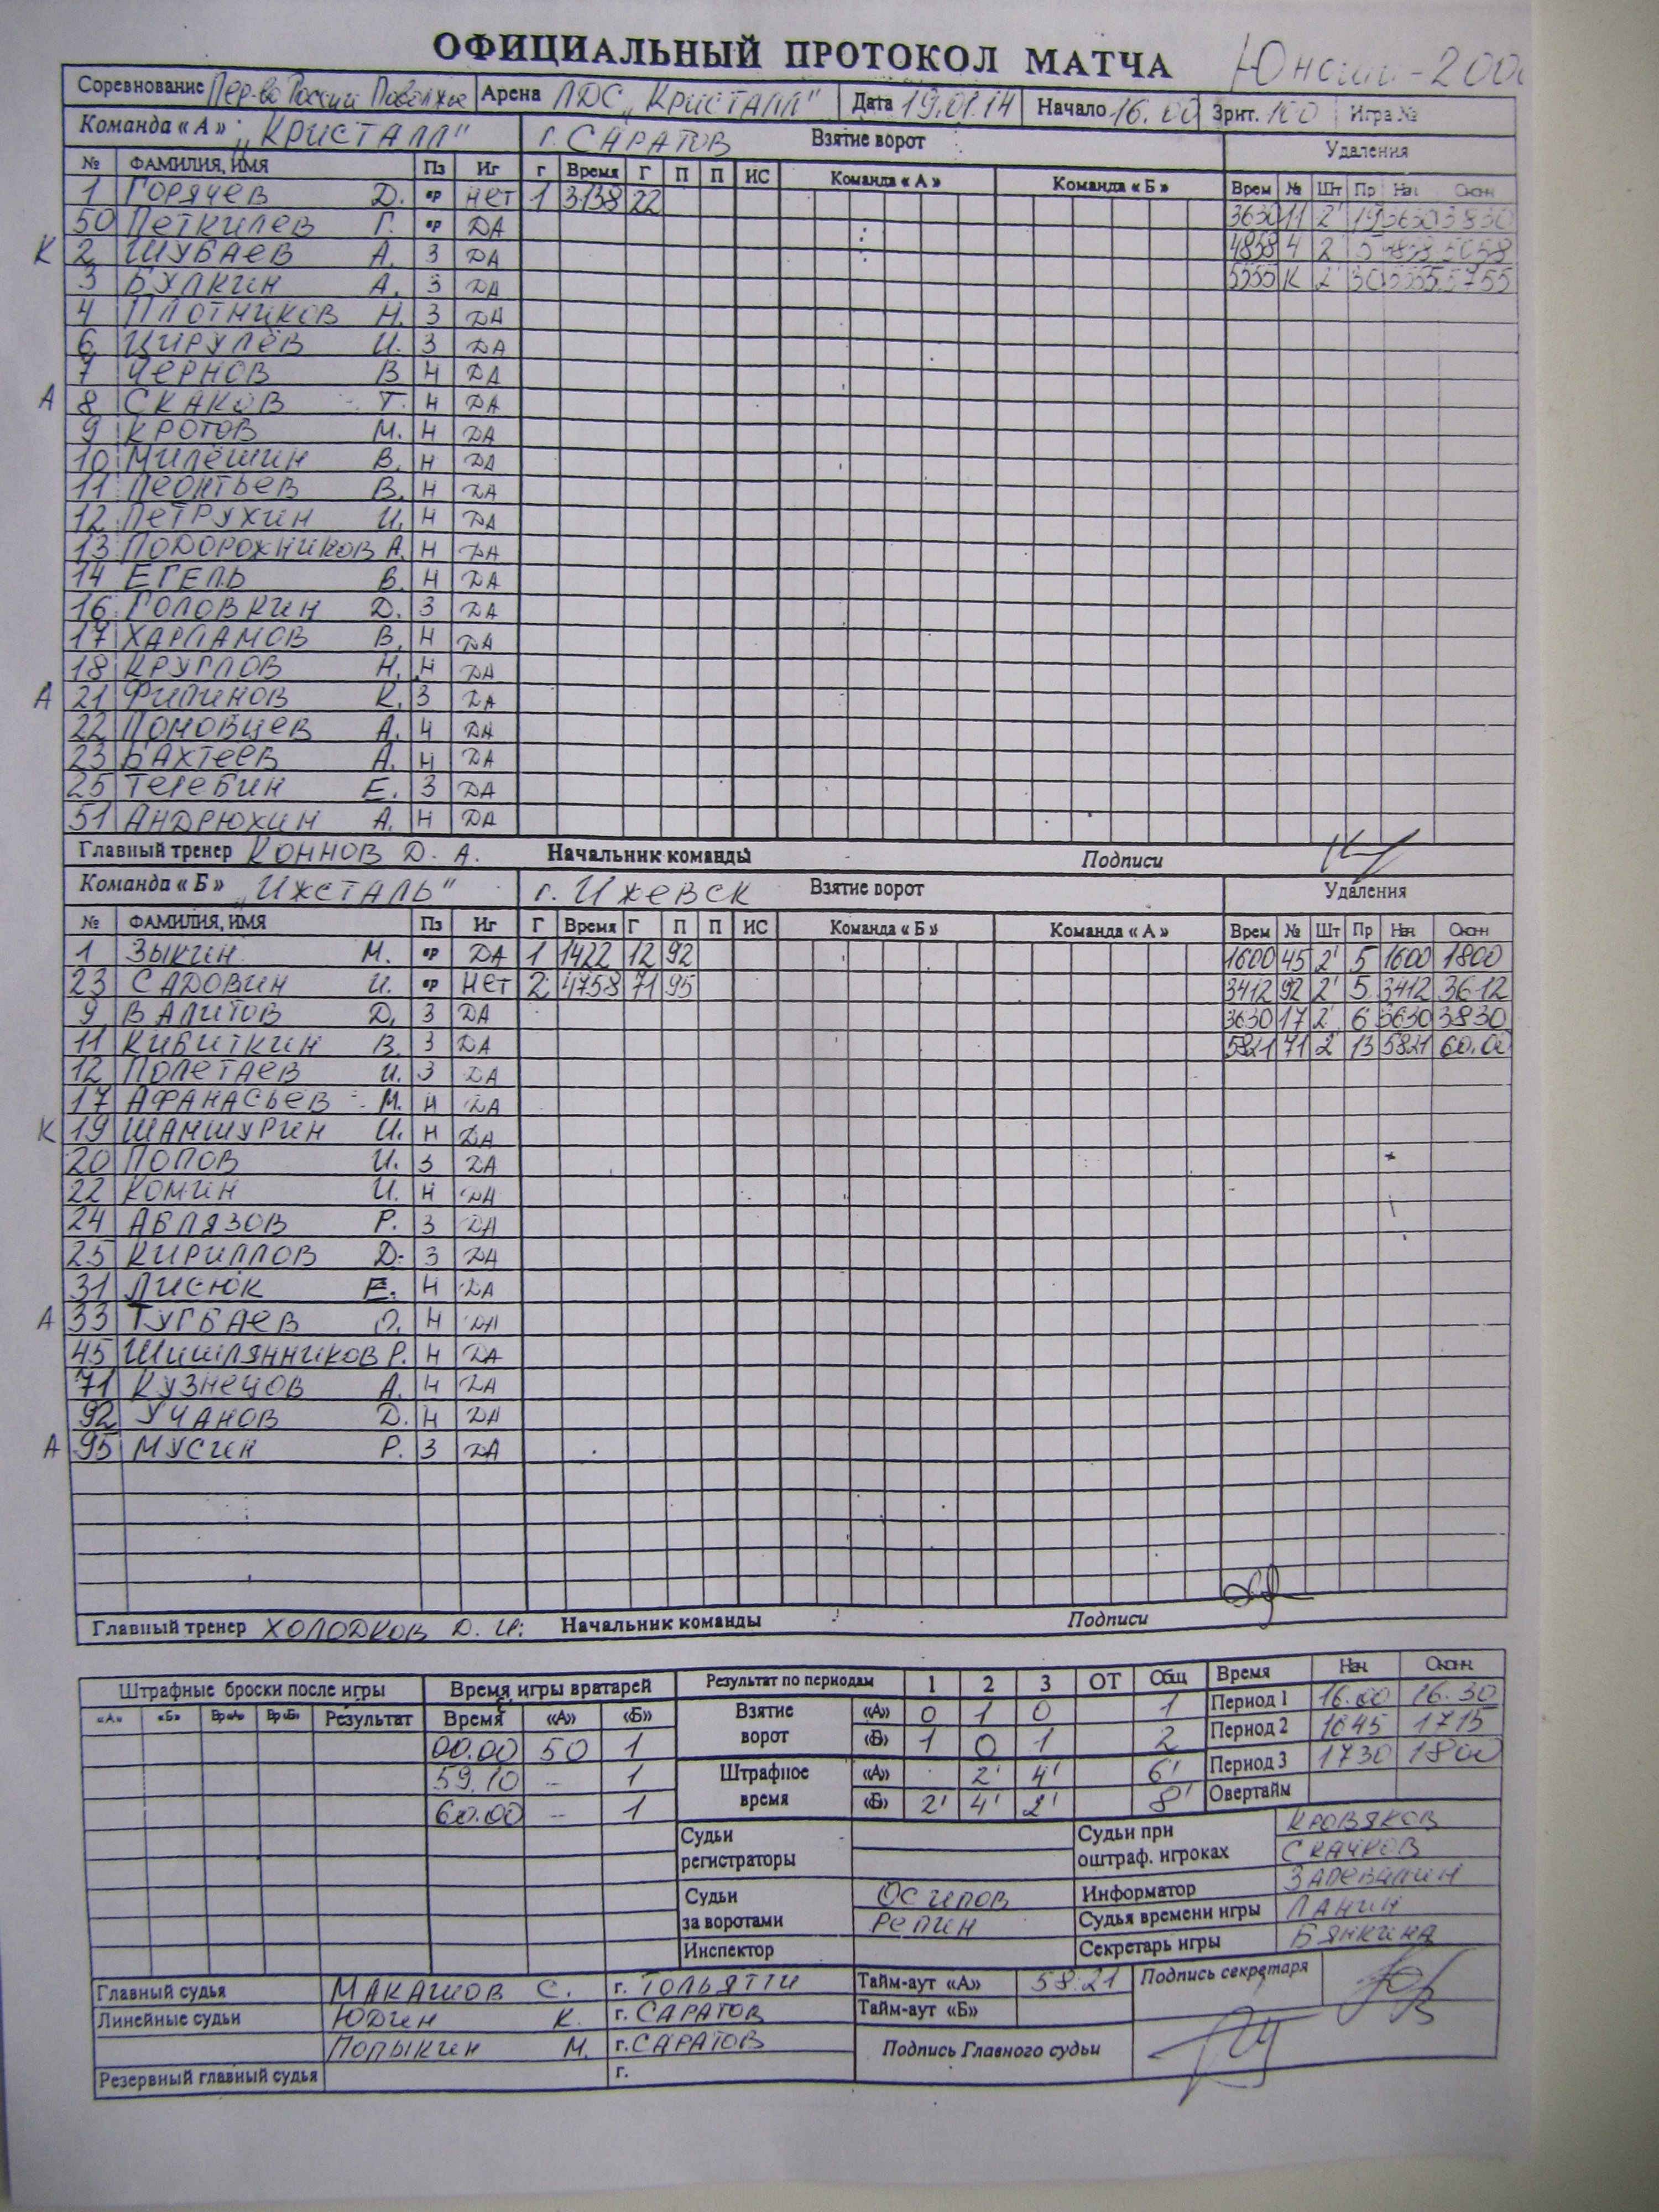 ОФИЦИАЛЬНЫЙ ПРОТОКОЛ МАТЧА
Соревнование Пер-во России Поволжье Арена ЛДС „Кристалл" Дата 19.01.14 Начало 16.00 Зрит. 100 Игра №
Команда «А» „Кристалл" г. САРАТОВ Взятие ворот Удаления
№ ФАМИЛИЯ, ИМЯ Пз Иг Г Время Г П П ИС Команда «А» Команда «Б» Врем № Шт Пр Нач Оконч
1 ГОРЯЧЕВ Д. вр НЕТ 1 3138 22 3630 11 2' 19 3630 3830
50 ПЕТКИЛЕВ Г. вр ДА 4858 4 2' 5 4858 5058
К 2 ШУБАЕВ А. З ДА 5555 К 2' 30 5555 5755
3 БУЛКИН А. З ДА
4 ПЛОТНИКОВ Н. З ДА
6 ЦИРУЛЁВ И. З ДА
7 ЧЕРНОВ В Н ДА
А 8 СКАКОВ Т. Н ДА
9 КРОТОВ М. Н ДА
10 МИЛЁШИН В. Н ДА
11 ЛЕОНТЬЕВ В. Н ДА
12 ПЕТРУХИН И. Н ДА
13 ПОДОРОЖНИКОВ А. Н ДА
14 ЕГЕЛЬ В. Н ДА
16 ГОЛОВКИН Д. З ДА
17 ХАРЛАМОВ В. Н ДА
18 КРУГЛОВ Н. Н ДА
А 21 ФИЛИНОВ К. З ДА
22 ПОМОВЦЕВ А. Н ДА
23 БАХТЕЕВ А. Н ДА
25 ТЕРЕБИН Е. З ДА
51 АНДРЮХИН А. Н ДА
Главный тренер КОННОВ Д. А. Начальник команды Подписи
Команда «Б» „ИЖСТАЛЬ" г. ИЖЕВСК Взятие ворот Удаления
№ ФАМИЛИЯ, ИМЯ Пз Иг Г Время Г П П ИС Команда «Б» Команда «А» Врем № Шт Пр Нач Оконч
1 ЗЫКИН М. вр ДА 1 1422 12 92 1600 45 2' 5 1600 1800
23 САДОВИН И. вр НЕТ 2 4758 71 95 3412 92 2' 5 3412 3612
9 ВАЛИТОВ Д. З ДА 3630 17 2' 6 3630 3830
11 КИБИТКИН В. З ДА 5821 71 2' 13 5821 60.00
12 ПОЛЕТАЕВ И. З ДА
17 АФАНАСЬЕВ М. Н ДА
К 19 ШАМШУРИН И. Н ДА
20 ПОПОВ И. З ДА
22 КОМИН И. Н ДА
24 АБЛЯЗОВ Р. З ДА
25 КИРИЛЛОВ Д. З ДА
31 ЛИСЮК Е. Н ДА
А 33 ТУГБАЕВ О. Н ДА
45 ШИШЛЯННИКОВ Р. Н ДА
71 КУЗНЕЦОВ А. Н ДА
92 УЧАНОВ Д. Н ДА
А 95 МУСИН Р. З ДА
Главный тренер ХОЛОДКОВ Д. И. Начальник команды Подписи
Штрафные броски после игры Время игры вратарей Результат по периодам 1 2 3 ОТ Общ Время Нач Оконч
«А» «Б» Вр«А» Вр«Б» Результат Время «А» «Б» Взятие ворот «А» 0 1 0 1 Период 1 16.00 16.30
00.00 50 1 «Б» 1 0 1 2 Период 2 1645 1715
59.10 – 1 Штрафное время «А» 2' 4' 6' Период 3 1730 1800
60.00 – 1 «Б» 2' 4' 2' 8' Овертайм
Судьи регистраторы Судьи при оштраф. игроках КРОВЯКОВ
СКАЧКОВ
Судьи за воротами ОСИПОВ Информатор
РЕПИН Судья времени игры ЛАНИН
Инспектор Секретарь игры БЯНКИНА
Главный судья МАКАШОВ С. г. ТОЛЬЯТТИ Тайм-аут «А» 58.21 Подпись секретаря
Линейные судьи ЮДИН К. г. САРАТОВ Тайм-аут «Б»
ПОПЫКИН М. г. САРАТОВ Подпись Главного судьи
Резервный главный судья г.